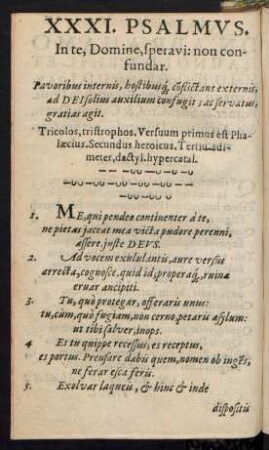 XXXI. PSALMVS.
In te, Domine, speravi: non con-
fundar.
Pavoribus internis, hostibusq́, cõflictans externis,
ad DEI solius auxilium confugit; ac servatus,
gratias agit.
Tricolos, tristrophos. Versuum primus est Pha-
læcius. Secundus heroicus. Tertius di-
meter, dactyl. hypercatal.
1. ME, qui pendeo continenter à te,
ne pietas jaceat mea victa pudore perenni,
assere juste DEVS.
2. Ad vocem exululantis, aure versus
arrecta, cognosce, quid id, properaq́, ruinæ
eruar ancipiti.
3. Tu, quò protegar, offeraris unus:
tu, cùm, quò fugiam, non cerno, petaris asylum:
ut tibi salver, inops.
4 Es tu quippe recessus, es receptus,
es portus. Prensare dabis quem, nomen ob ingẽs,
ne ferar esca feris.
5. Exolvar laqueis, & hinc & inde
dispositis